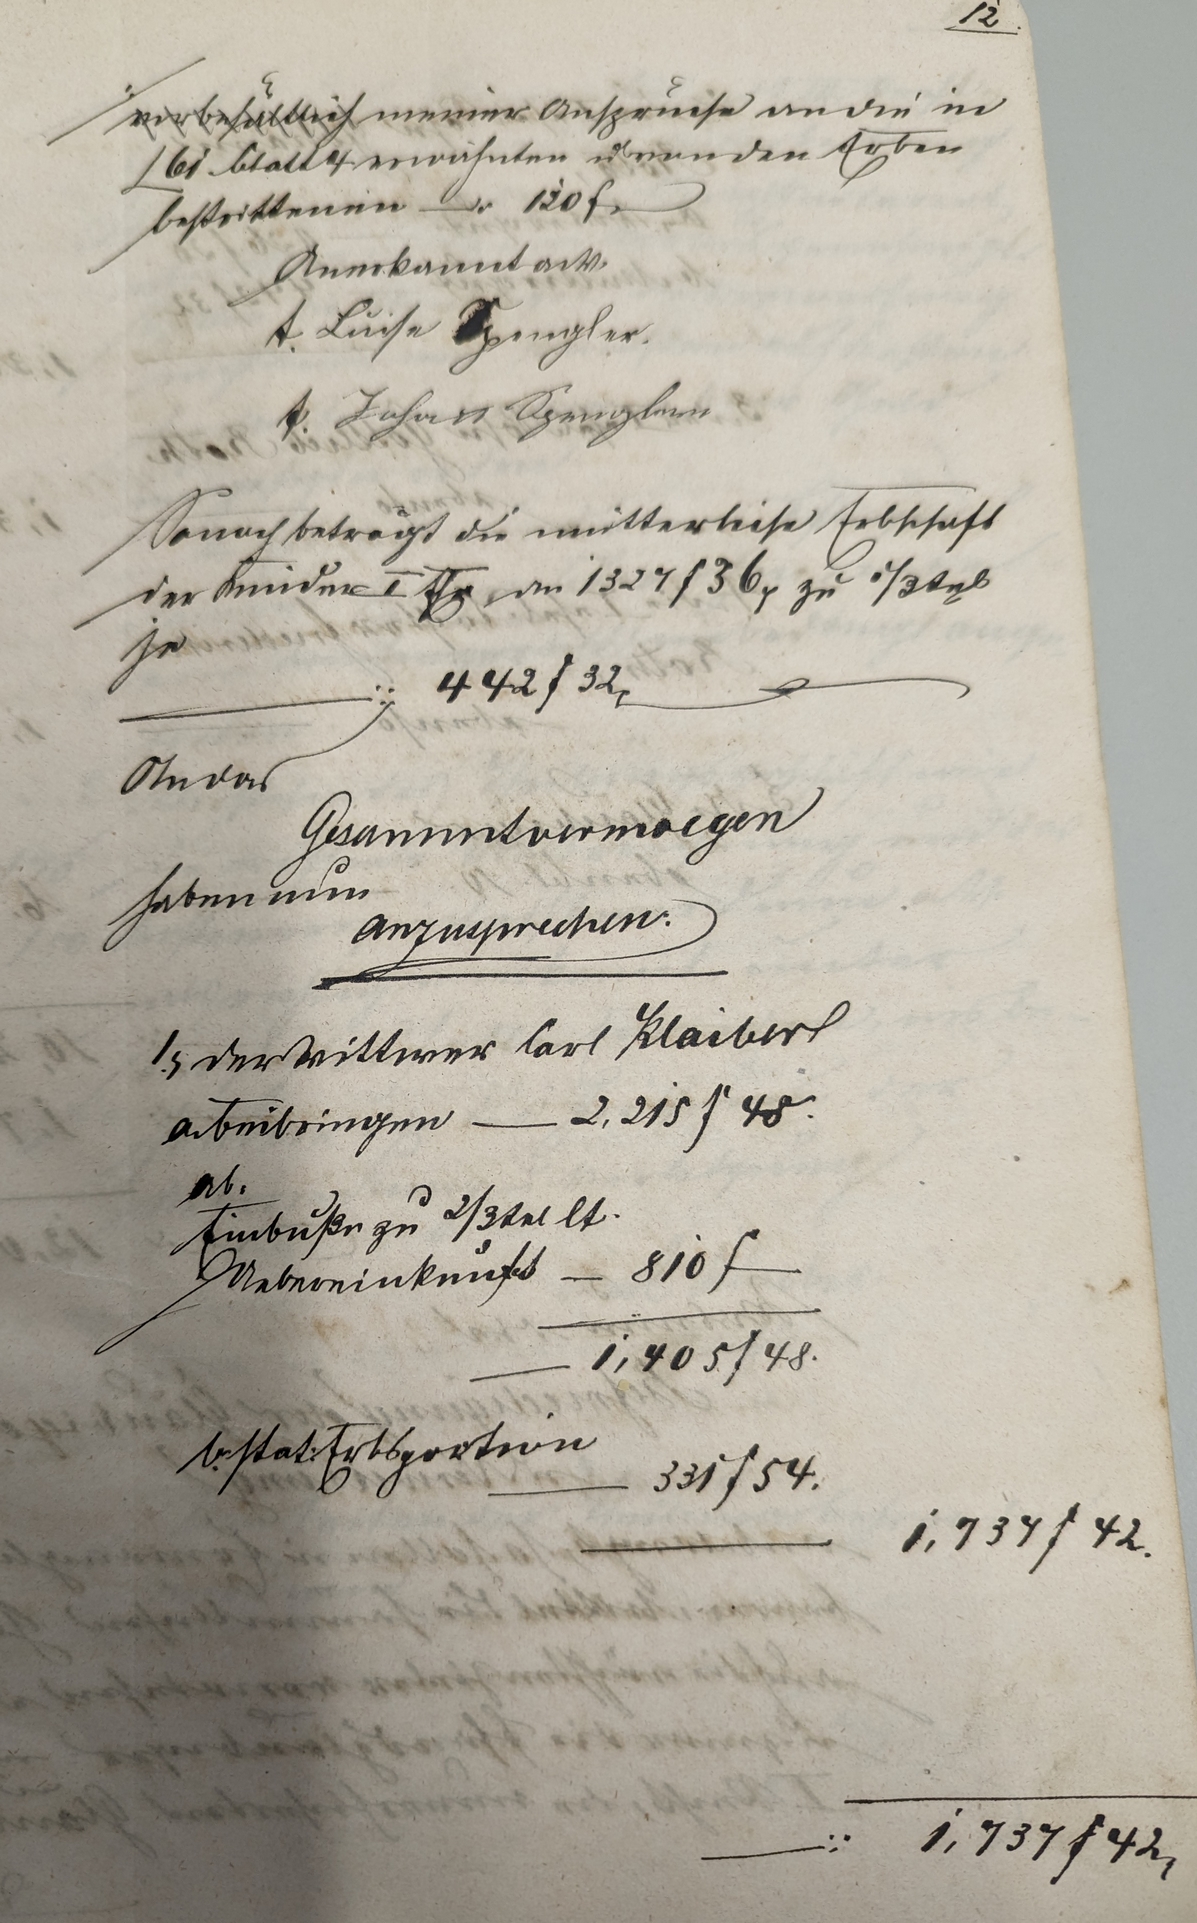 12.
vorbehältlich meiner Ansprüche an die in
bei Blatt 4 erwähnten u. von den Erben
bestrittenen — 120 f.
Anerkannt
t. Luise Spengler.
t. Johann Spengler
Sonach beträgt die mütterliche Erbschaft
der Kinder I. Ehe an 1327 f 36, zu 1/3tel
je
442 f 32,
An das
Gesammtvermoegen
haben nun
anzusprechen:
1, der Wittwer Carl Klaiber
a. Beibringen — 2,215 f 48.
ab.
Einbuße zu 2/3tel lt.
Uebereinkunft — 810 f —
— 1,405 f 48.
b. stat. Erbsportion
— 331 f 54.
1,737 f 42.
— 1,737 f 42,